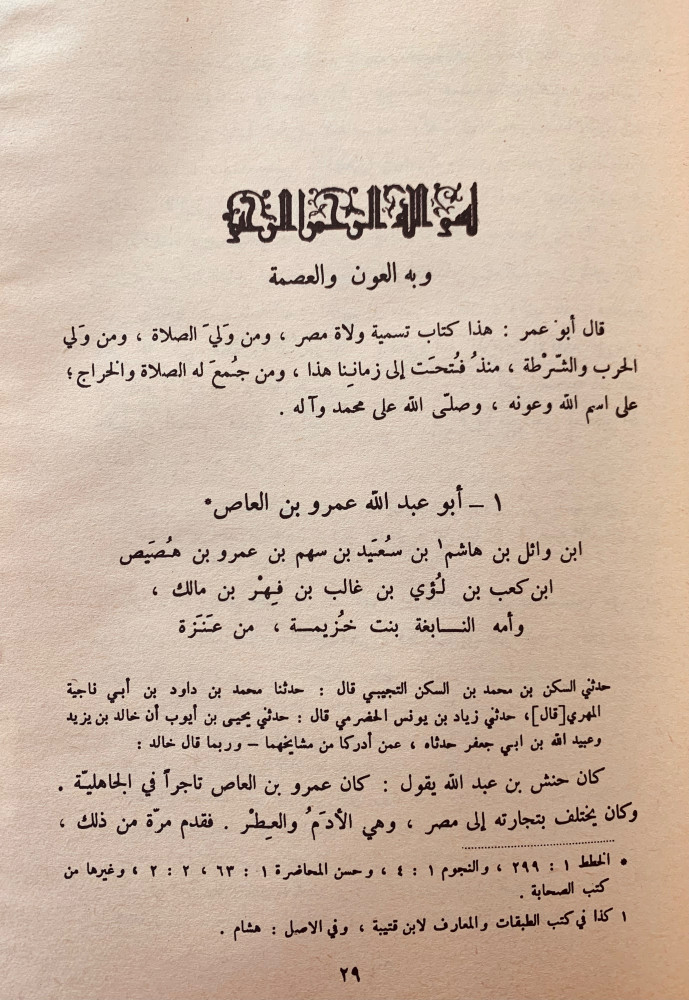 بسم الله الرحمن الرحيم
وبه العون والعصمة
قال أبو عمر : هذا كتاب تسمية ولاة مصر ، ومن وَليَ الصلاة ، ومن وَلي
الحرب والشّرْطة ، منذُ فُتحَت إلى زماننا هذا ، ومن جُمعَ له الصلاة والخراج ؛
على اسم الله وعونه ، وصلّى الله على محمد وآله .
١ – أبو عبد الله عمرو بن العاص*
ابن وائل بن هاشم١ بن سُعَيَد بن سهم بن عمرو بن هُصَيَص
ابن كعب بن لُؤي بن غالب بن فِهْر بن مالك ،
وأمه النـــابغة بنت خُزيمــــة ، من عَنَزة
حدثني السكن بن محمد بن السكن التجيبي قال : حدثنا محمد بن داود بن أبي ناجية
المهري [قال] ، حدثني زياد بن يونس الحضرمي قال : حدثني يحيى بن أيوب أن خالد بن يزيد
وعبيد الله بن ابي جعفر حدثاه ، عمن أدركا من مشايخهما – وربما قال خالد :
كان حنش بن عبد الله يقول : كان عمرو بن العاص تاجراً في الجاهليّة .
وكان يختلف بتجارته إلى مصر ، وهي الأدَمُ والعِطْر . فقدم مرّة من ذلك ،
* الخطط ١ : ٢٩٩ ، والنجوم ١ : ٤ ، وحسن المحاضرة ١ : ٦٣ ، ٢ : ٢ ، وغيرها من
كتب الصحابة .
١ كذا في كتب الطبقات والمعارف لابن قتيبة ، وفي الاصل : هشام .
٢٩